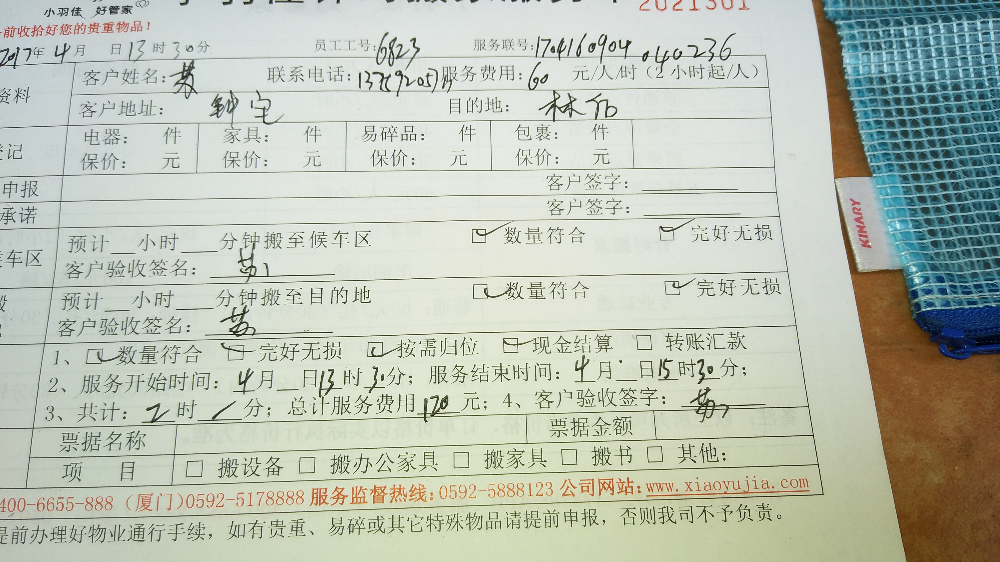 小羽佳 好管家
2021301
前收拾好您的贵重物品！
2017年4月 日13时30分 员工工号：6823 服务联号：1704160904 040236
资料 客户姓名： 联系电话： 服务费用：60 元/人/时（2小时起/人）
客户地址： 钟宅 目的地：
登记 电器： 件 家具： 件 易碎品： 件 包裹： 件
保价： 元 保价： 元 保价： 元 保价： 元
申报 客户签字：
承诺 客户签字：
车区 预计 小时 分钟搬至候车区 数量符合 完好无损
客户验收签名：
预计 小时 分钟搬至目的地 数量符合 完好无损
客户验收签名：
1、 数量符合 完好无损 按需归位 现金结算 □ 转账汇款
2、服务开始时间：4月 日13时30分；服务结束时间：4月 日15时30分；
3、共计：2时/分；总计服务费用120元；4、客户验收签字：
票据名称 票据金额
项 目 □ 搬设备 □ 搬办公家具 □ 搬家具 □ 搬书 □ 其他：
400-6655-888（厦门）0592-5178888 服务监督热线：0592-5888123 公司网站：www.xiaoyujia.com
提前办理好物业通行手续，如有贵重、易碎或其它特殊物品请提前申报，否则我司不予负责。
KINARY